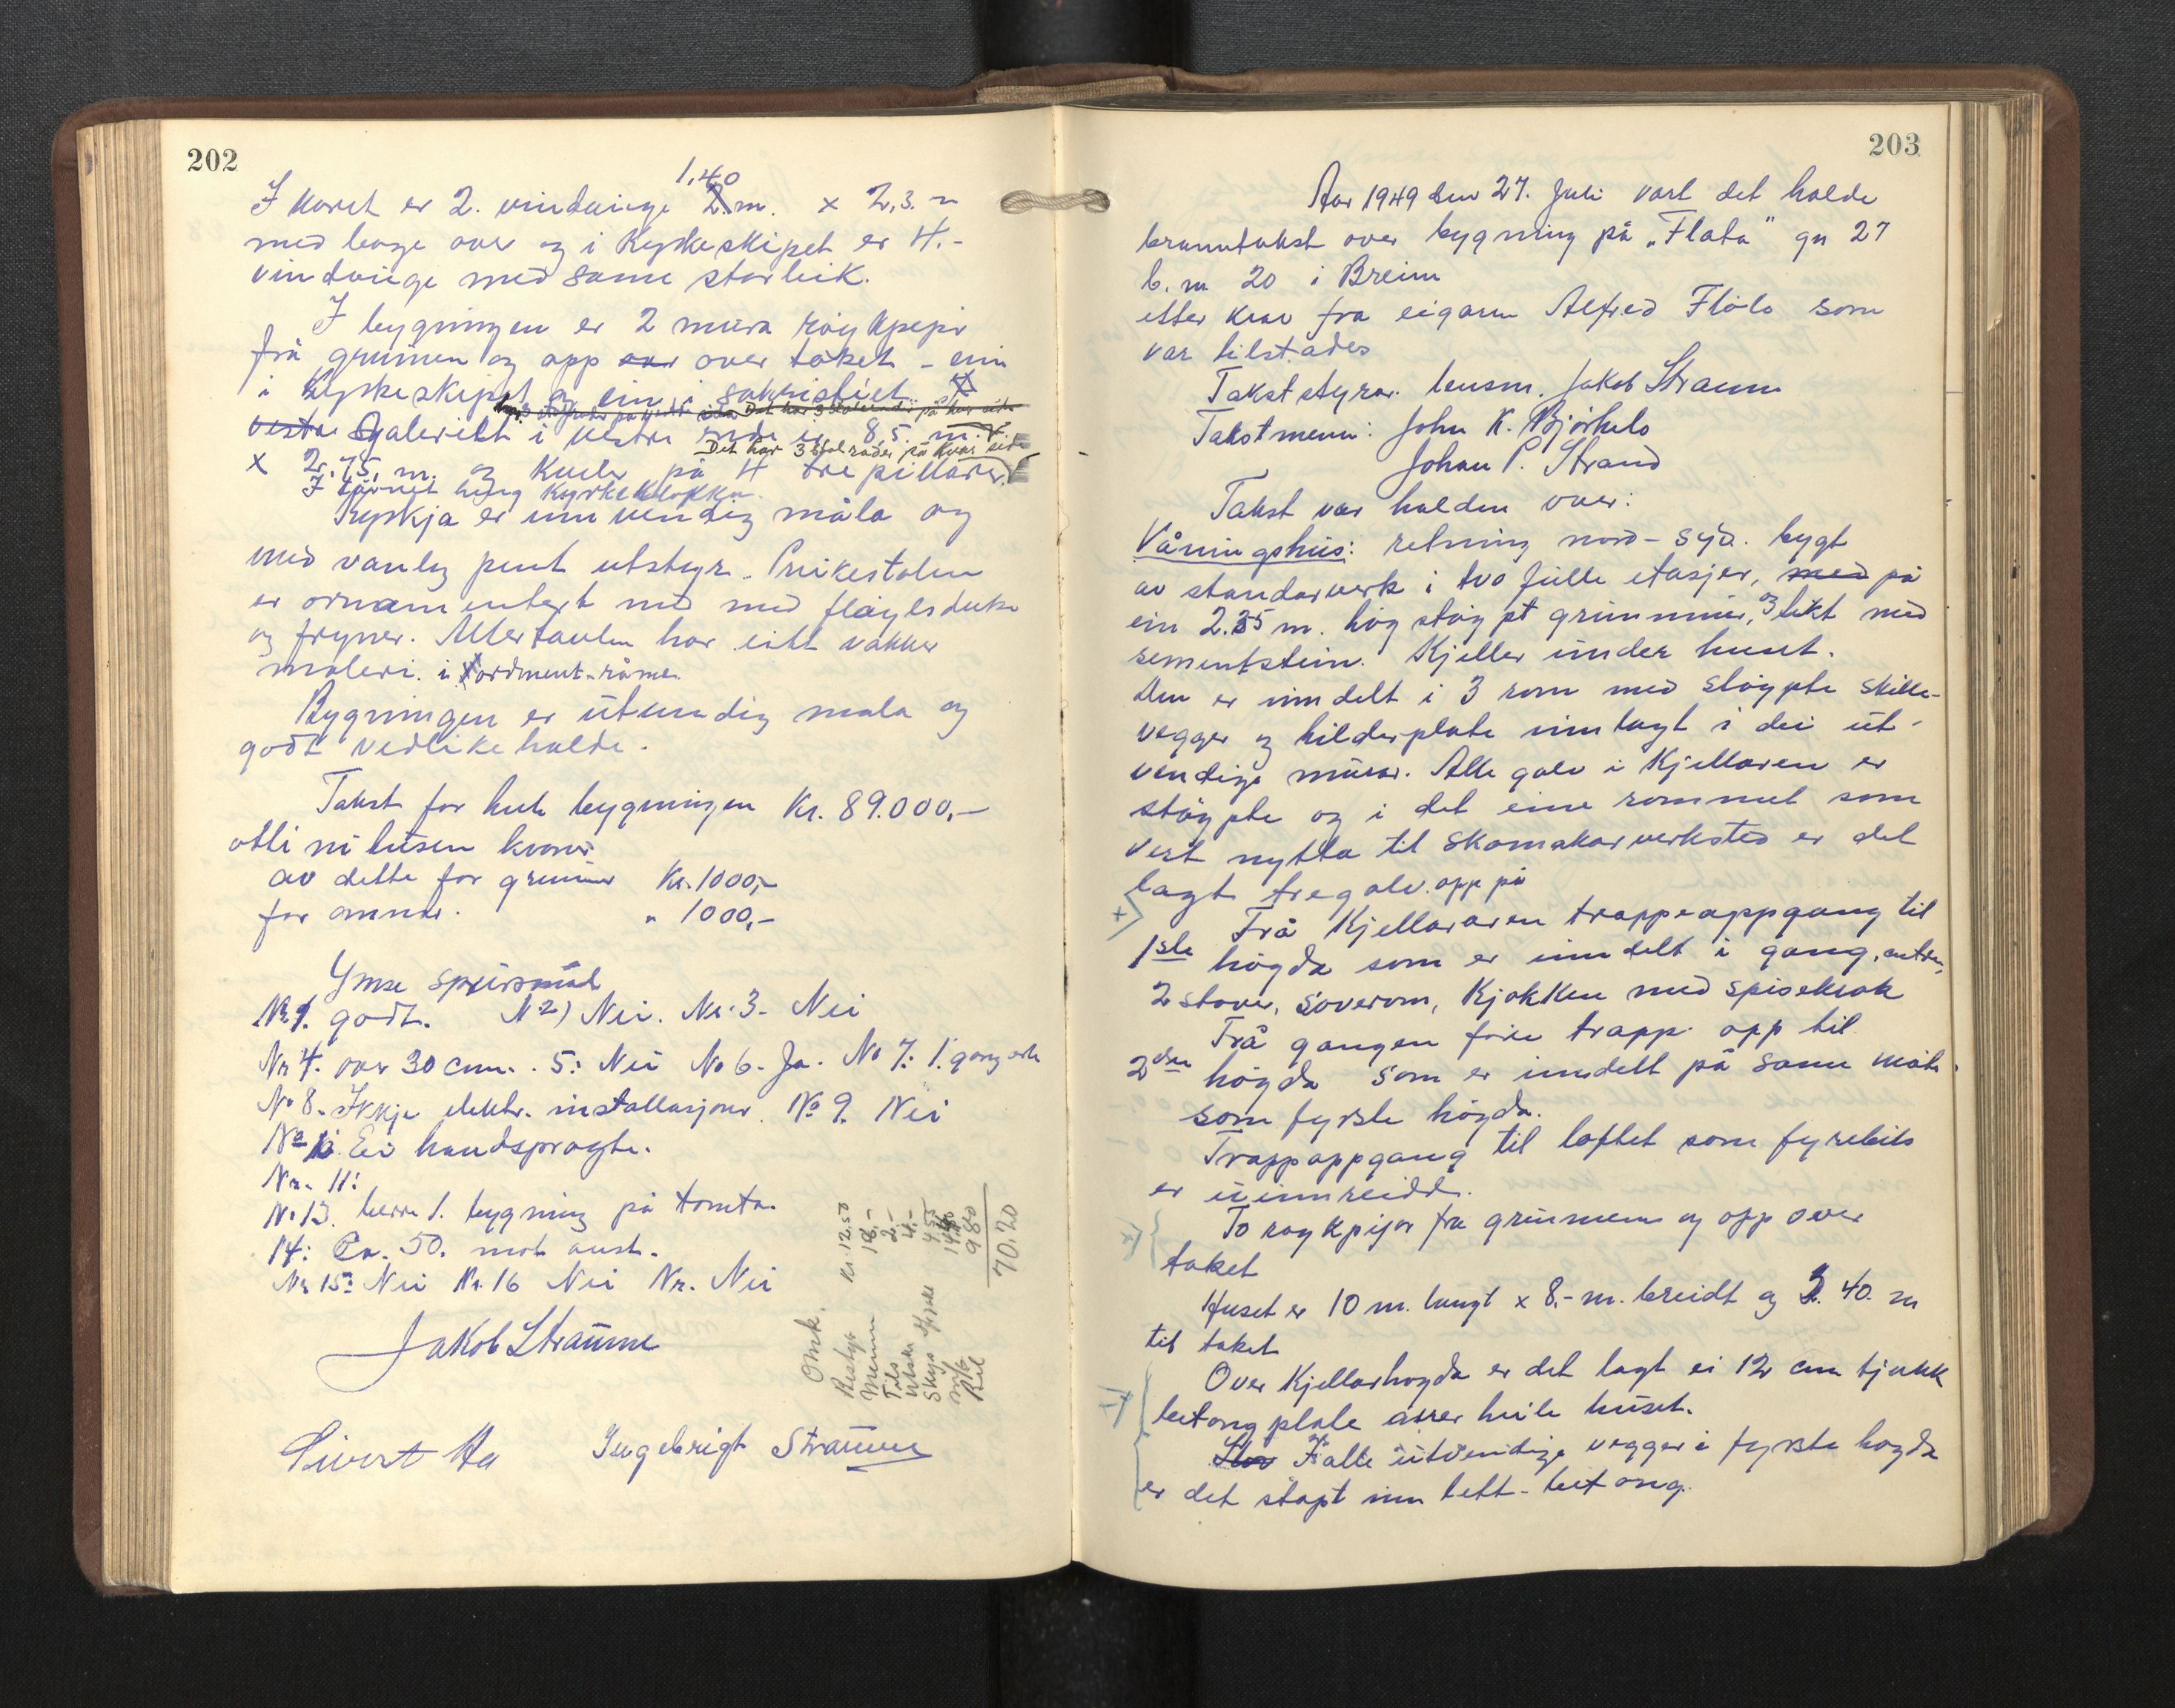 202
1,40
I koret er 2. vindauge 2. m. x 2,3. m
med boge over og i kyrkeskipet er 4.-
vindauge med same storleik.
I bygningen er 2 mura røykpipr
frå grunnen og opp over taket - ein
i kyrkeskipet og ein i sakristiet.
Det har 3 stolrader på kvar side
vestre Galeriet i vestre ende er 8,5. m.
Det har 3 stolrader på kvar side
x 2,75, m. og kviler på 4 tre pillarer.
I tårnet heng kyrkeklokka.
Kyrkja er innvendig måla og
med vanleg pent utstyr. Preikestolen
er ornamentert med med fløyelsduk
og fryner. Altertavlen har eitt vakker
maleri. i ordment-råme.
Bygningen er utvendig mala og
godt vedlikehalde.
Takst for heile bygningen Kr. 89.000,-
otti ni tusen kroner
av dette for grunnur Kr. 1000,-
for omnar. " 1000,-
Ymse spursmål
Nr. 1. godt. N 2) Nei. Nr. 3. Nei
Nr 4. over 30 cm. . 5: Nei No 6. Ja. No 7. 1. gong
No 8. Ikkje elektr. installasjoner. No 9. Nei
No 10. Ei handsprøyte.
Nr. 11:
Nr 13. berre 1. bygning på tomta.
14: Ca. 50. mot aust.
Nr 15: Nei Nr. 16 Nei Nr. Nei
Jakob Straume
Sivert Ha Ingebrigt Straume
Omk.
Bestyr Kr. 12.50
Menn 18,-
Tils 2,-
Utskr 4,-
Skyss 4.55
Bil 9 80
70.20
203
Aar 1949 den 27. Juli vart det halde
branntakst over bygning på "Flata" gn 27
b. n 20 i Breim
etter krav fra eigaren Alfred Flølo som
var tilstades
Takststyrar. lensm. Jakob Straume
Takstmenn: John K. Bjørkelo
Johan P. Strand
Takst var halden over:
Våningshus: retning nord-syd. bygt
av standarverk i tvo fulle etasjer, med på
ein 2.35 m. høg støypt grunnmur, og tekt med
sementstein. Kjeller under huset.
Den er inndelt i 3 rom med støypte skille-
vegger og hilderplate innlagt i dei ut-
vendige murar. Alle golv i kjellaren er
støypte og i det eine rommet som
vert nytta til skomakarverksted er det
lagt tregolv. opp på
Frå Kjellararen trappeoppgang til
1ste høgda som er inndelt i gang, entre,
2 stover, soverom, kjøkken med spisekrok
Frå gangen føre trapp opp til
2den høgda som er inndelt på same måte
som fyrste høgda.
Trappoppgang til loftet som fyrebils
er uinnreidd.
To røykpipor fra grunnen og opp over
taket
Huset er 10 m. langt x 8,- m. breidt og 5. 40. m
til taket
Over kjellarhøgda er det lagt ei 12 cm tjukk
betong plate over heile huset.
I alle utvendige vegger i fyrste høgda
er det støpt inn lett-betong.